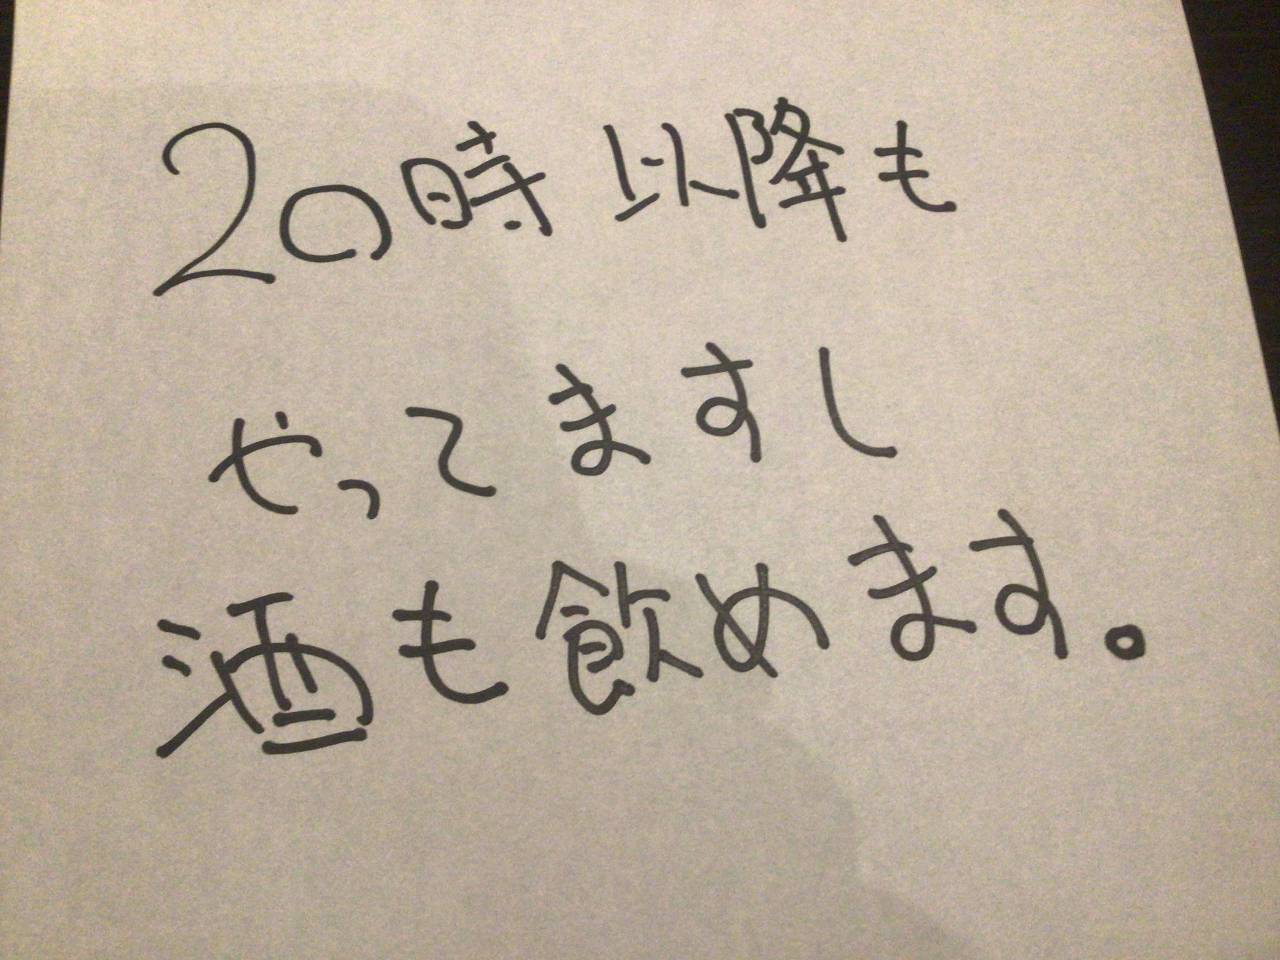 20時以降も
やってますし
酒も飲めます。